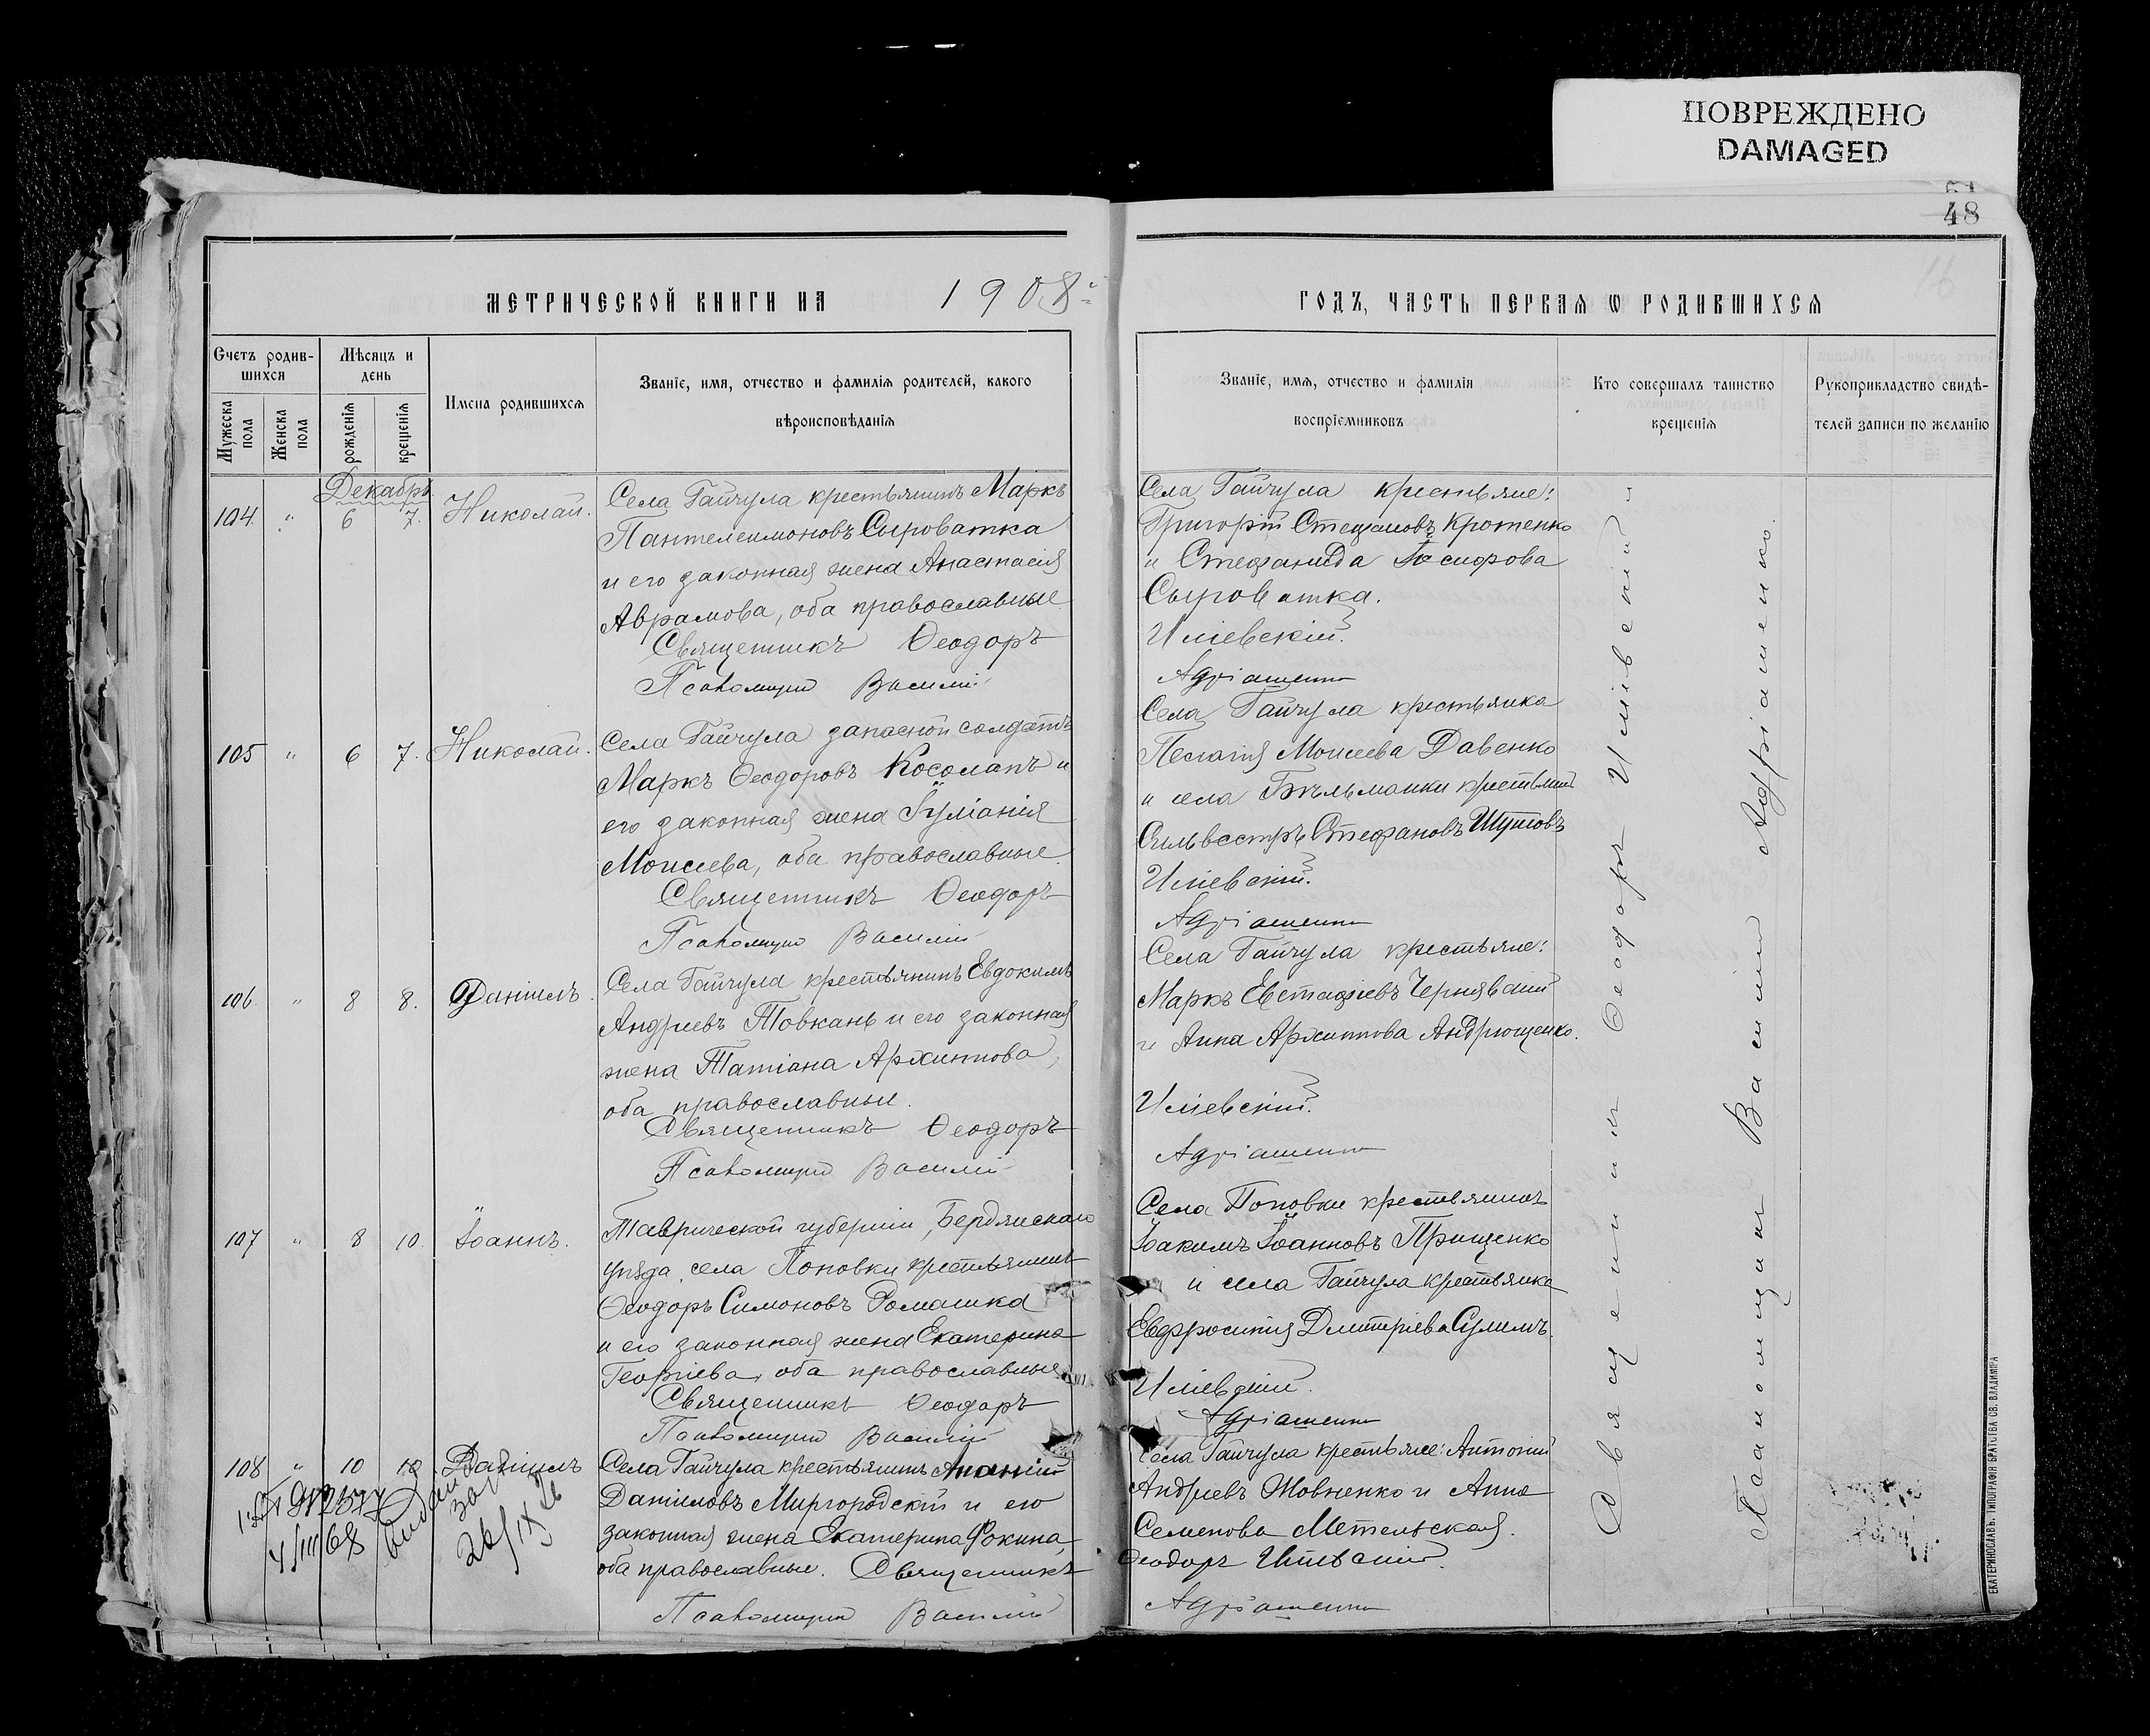 ПОВРЕЖДЕНО
DAMAGED
48
МЕТРИЧЕСКОЙ КНИГИ НА 1908
Счетъ родив-
шихся
Мѣсяцъ и
день
Мужеска пола
Женска пола
рожденія
крещенія
Имена родившихся
Званіе, имя, отчество и фамилія родителей, какого
вѣроисповѣданія
Декабрь
104. " 6 7. Николай.
Села Гайчула крестьянинъ Маркъ
Пантелеимоновъ Сыроватка
и его законная жена Анастасія
Аврамова, оба православные
Священникъ Ѳеодоръ
Псаломщикъ Василій
105 " 6 7. Николай.
Села Гайчула запасной солдатъ
Маркъ Ѳеодоровъ Косолапъ и
его законная жена Іуліанія
Моисеева, оба православные.
Священникъ Ѳеодоръ
Псаломщикъ Василій
106. " 8 8. Даніилъ.
Села Гайчула крестьянинъ Евдокимъ
Андреевъ Товкань и его законная
жена Татіана Архиппова,
оба православные.
Священникъ Ѳеодоръ
Псаломщикъ Василій
107 " 8 10. Іоаннъ.
Таврической губерніи, Бердянскаго
уѣзда, села Поповки крестьянинъ
Ѳеодоръ Симоновъ Ромашка
и его законная жена Екатерина
Георгіева, оба православные
Священникъ Ѳеодоръ
Псаломщикъ Василій
108 " 10 10. Даніилъ
Села Гайчула крестьянинъ Ананій
Даниловъ Миргородскій и его
законная жена Екатерина Фокина,
оба православные. Священникъ
Псаломщикъ Василій
4/III 68
26/IX
ГОДЪ, ЧАСТЬ ПЕРВАЯ Ѡ РОДИВШИХСЯ
Званіе, имя, отчество и фамилія
воспріемниковъ
Кто совершалъ таинство
крещенія
Рукоприкладство свидѣ-
телей записи по желанію
Села Гайчула крестьяне:
Григорій Стефановъ Кротенко
и Стефанида Іосифова
Сыроватка.
Иліевскій.
Адріашенко
Села Гайчула крестьянка
Пелагія Моисеева Давенко
и села Бѣльманки крестьянинъ
Сильвестръ Стефановъ Шутовъ
Иліевскій.
Адріашенко
Села Гайчула крестьяне:
Маркъ Евстафіевъ Чернявскій
и Анна Архиппова Андрющенко.
Иліевскій.
Адріашенко
Села Поповки крестьянинъ
Іоакимъ Іоанновъ Прищенко
и села Гайчула крестьянка
Евфросинія Дмитріева Сулимъ.
Иліевскій.
Адріашенко
Села Гайчула крестьяне: Антоній
Андреевъ Жовненко и Анна
Семенова Метельская.
Ѳеодоръ Иліевскій.
Адріашенко
Священникъ Ѳеодоръ Иліевскій и
Псаломщикъ Василій Адріашенко.
ЕКАТЕРИНОСЛАВЪ. ТИПОГРАФІЯ БРАТСТВА СВ. ВЛАДИМІРА